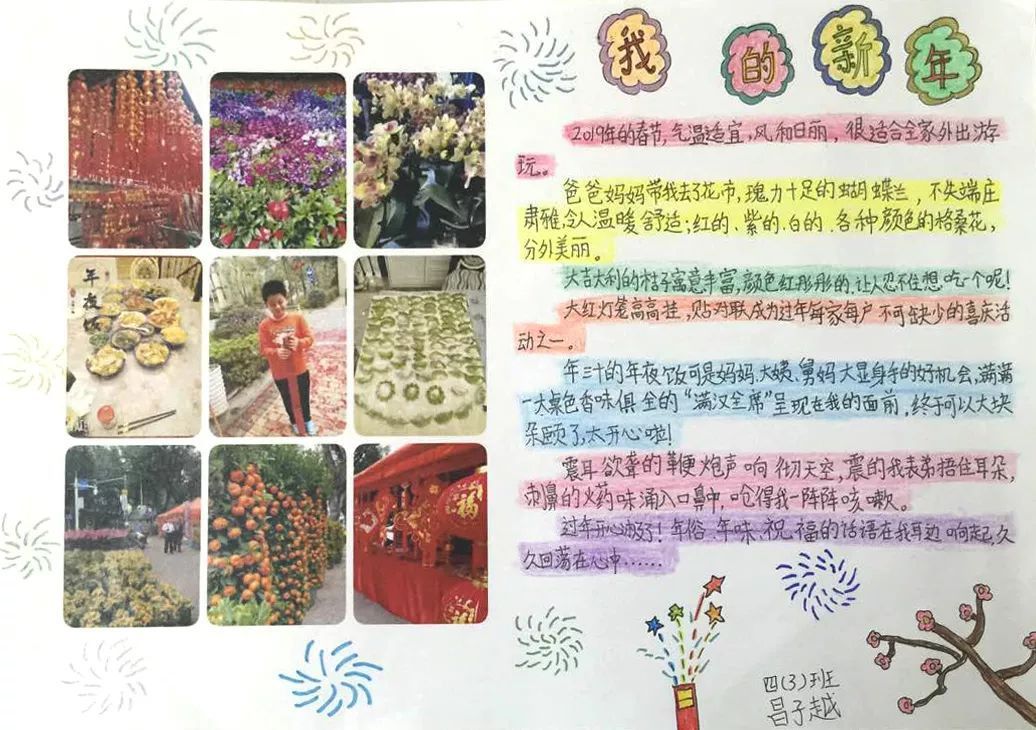 我的新年
2019年的春节,气温适宜,风和日丽,很适合全家外出游
玩。
爸爸妈妈带我去了花市,瑰力十足的蝴蝶兰,不失端庄
肃雅,令人温暖舒适;红的、紫的、白的、各种颜色的格桑花,
分外美丽。
大吉大利的桔子富意丰富,颜色红彤彤的,让人忍不住想吃一个呢!
大红灯笼高高挂,贴对联成为过年每家每户不可缺少的喜庆活
动之一。
年三十的年夜饭可是妈妈、大姨、舅妈大显身手的好机会,满满
一大桌色香味俱全的“满汉全席”呈现在我的面前,终于可以大块
朵颐了,太开心啦!
震耳欲聋的鞭炮声响彻天空,震的我表弟捂住耳朵,
刺鼻的火药味涌入口鼻中,呛得我一阵阵咳嗽。
过年开心极了!年俗、年味、祝福的话语在我耳边响起,久
久回荡在心中……
四(3)班
昌子越
年夜饭
福